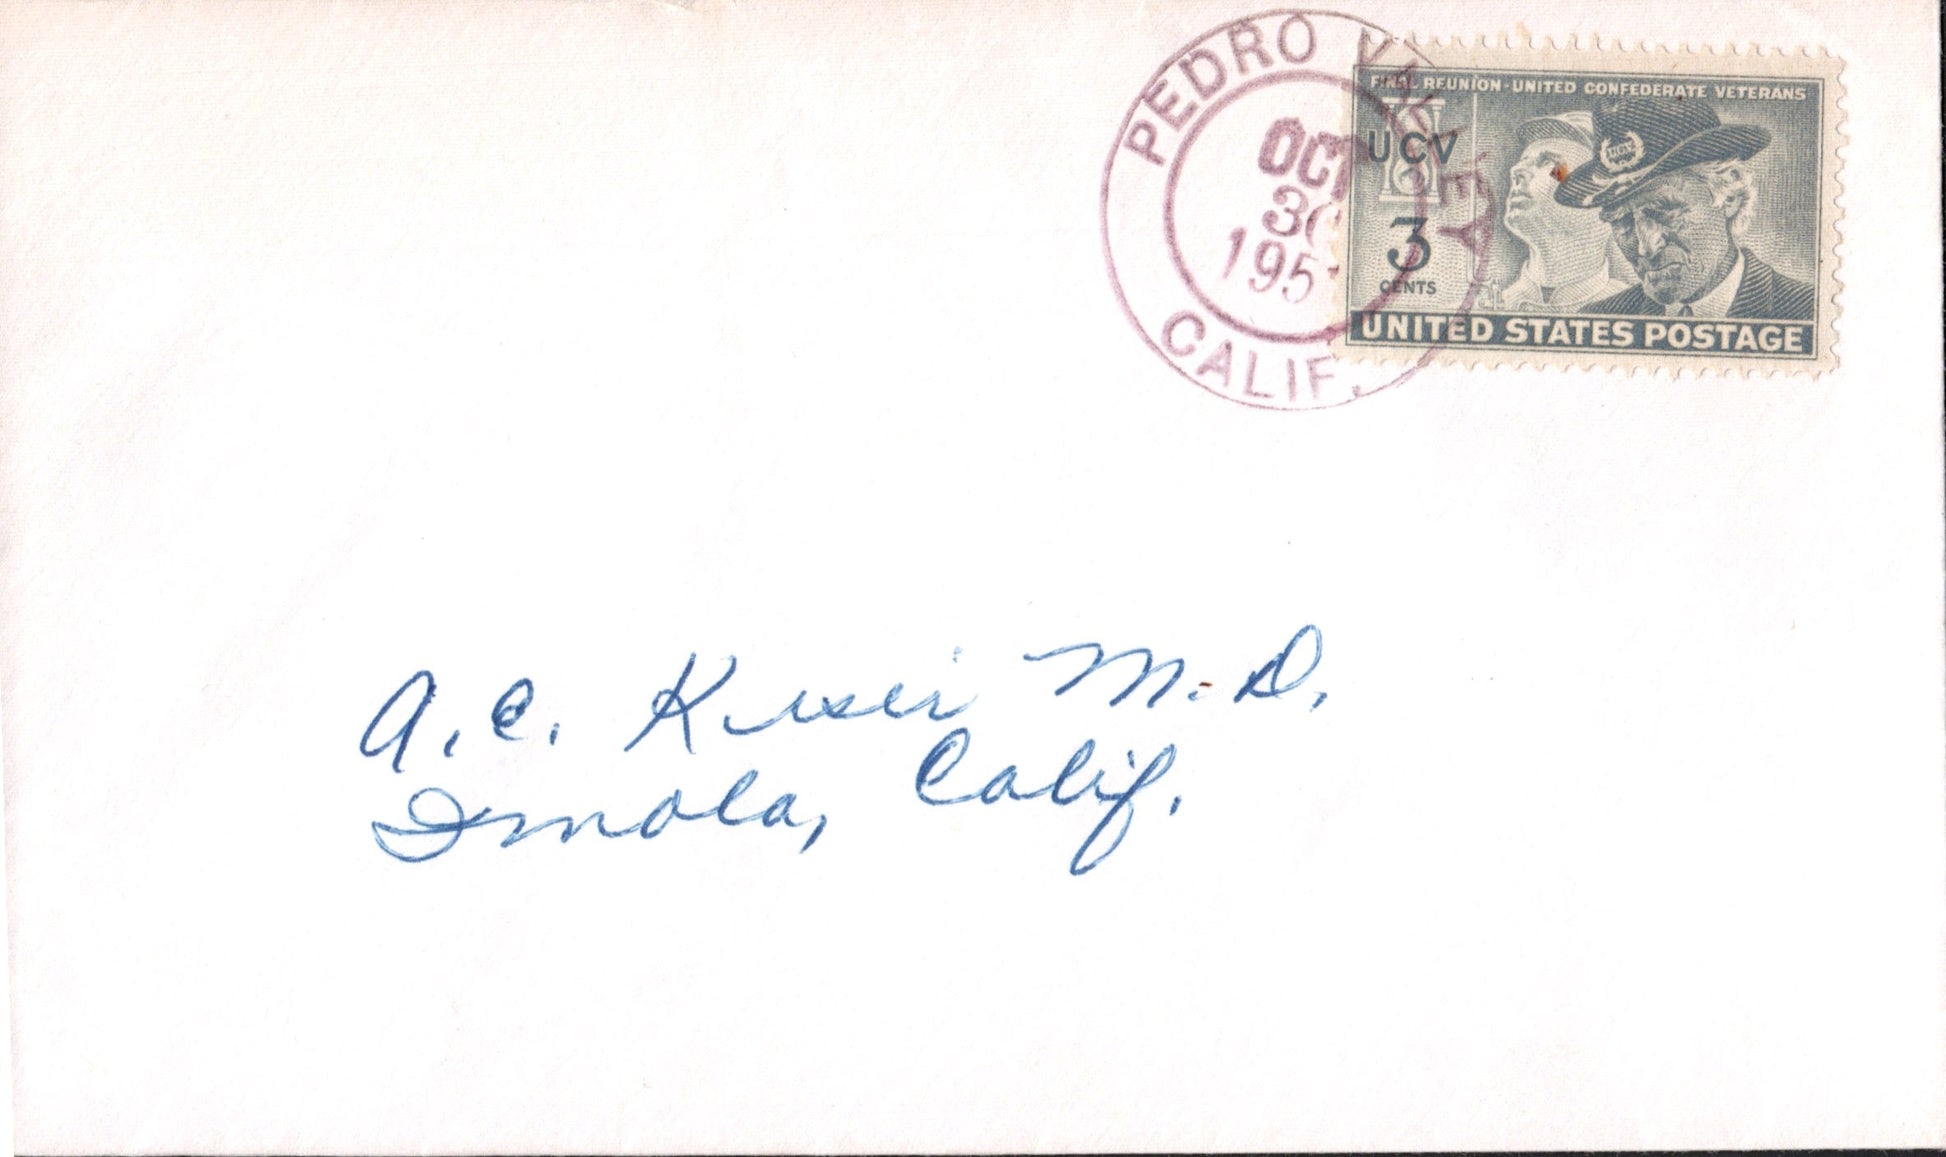 PEDRO VALLEY
OCT
30
195
CALIF.
FINAL REUNION-UNITED CONFEDERATE VETERANS
UCV
3
CENTS
UNITED STATES POSTAGE
A. C. M.D.
Imola, Calif.